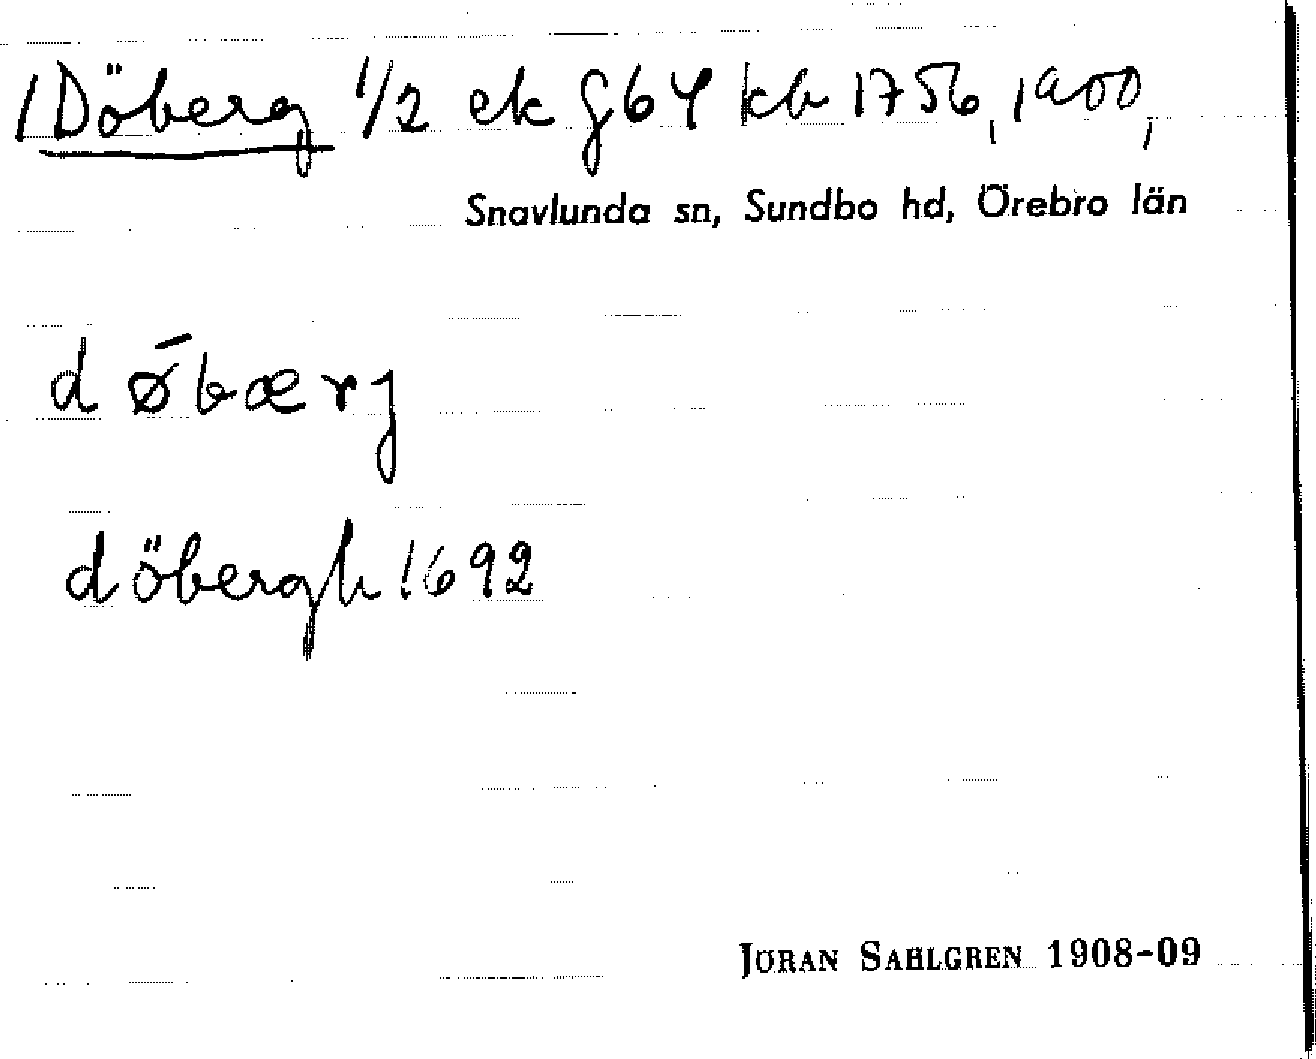 /Döberg 1/2 ek g64 kb 1756, 1900,
Snavlunda sn, Sundbo hd, Örebro län
dǿbærj
döbergh 1692
JÖRAN SAHLGREN 1908-09